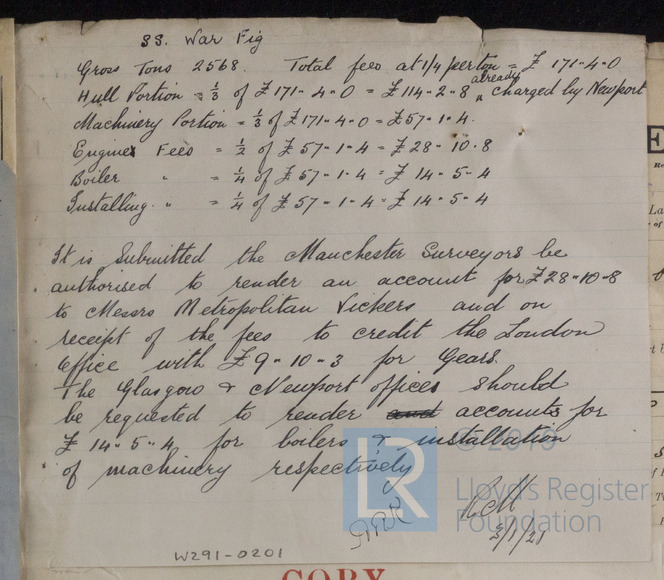 SS. War Fig
Gross Tons 2568. Total fees at 1/4 per ton = £ 171-4-0
Hull Portion = 1/3 of £171-4-0 = £114-2-8 already charged by Newport
Machinery Portion = 1/3 of £171-4-0 = £57-1-4.
Engines Fees = 1/2 of £57-1-4 = £28-10-8
Boiler " = 1/4 of £57-1-4 = £14-5-4
Installing " = 1/4 of £57-1-4 = £14-5-4
It is Submitted the Manchester Surveyors be
authorised to render an account for £28-10-8
to Messrs Metropolitan Vickers and on
receipt of the fees to credit the London
Office with £9-10-3 for Gears.
The Glasgow & Newport offices should
be requested to render and accounts for
£14-5-4 for boilers & installation
of machinery respectively
© 2019
LR
Lloyd's Register
Foundation
3/1/21
W291-0201
COPY